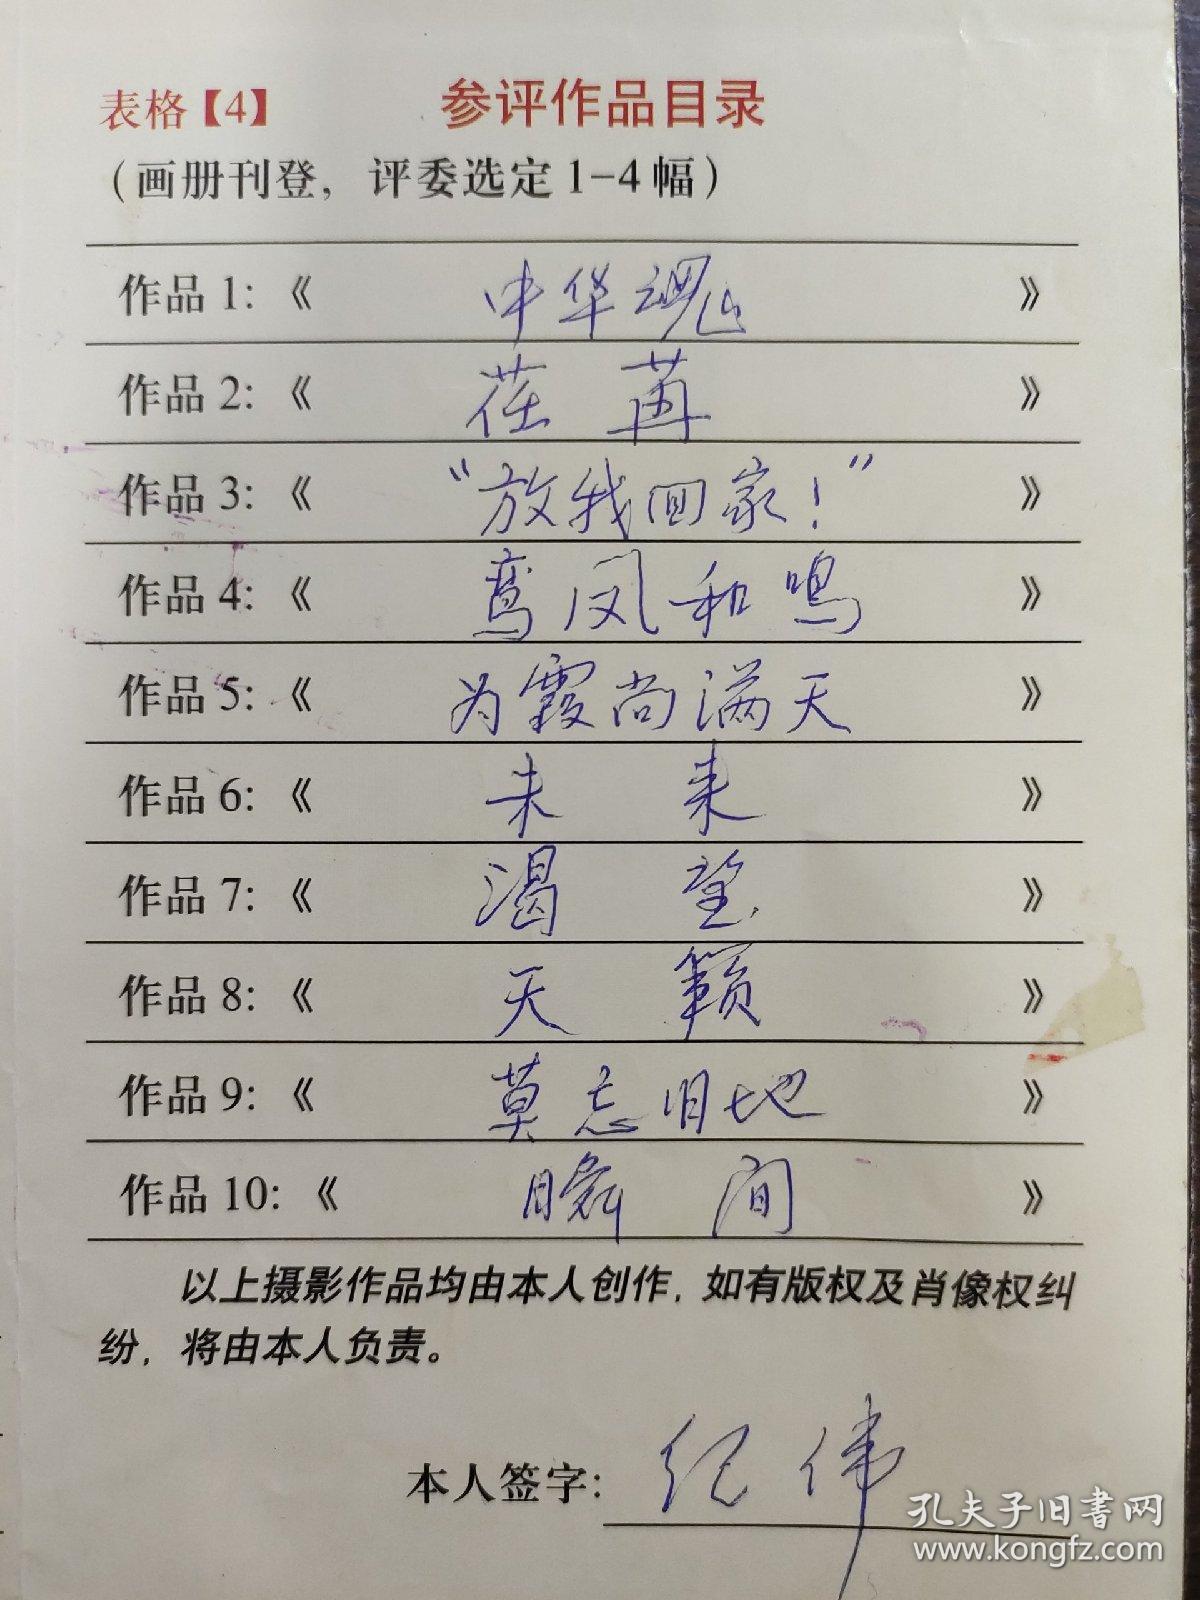 表格【4】 参评作品目录
（画册刊登，评委选定1-4幅）
作品1：《 中华魂 》
作品2：《 荏苒 》
作品3：《 “放我回家！” 》
作品4：《 鸾凤和鸣 》
作品5：《 为霞尚满天 》
作品6：《 未来 》
作品7：《 渴望 》
作品8：《 天籁 》
作品9：《 莫忘旧地 》
作品10：《 瞬间 》
以上摄影作品均由本人创作，如有版权及肖像权纠
纷，将由本人负责。
本人签字： 纪伟
孔夫子旧书网
www.kongfz.com